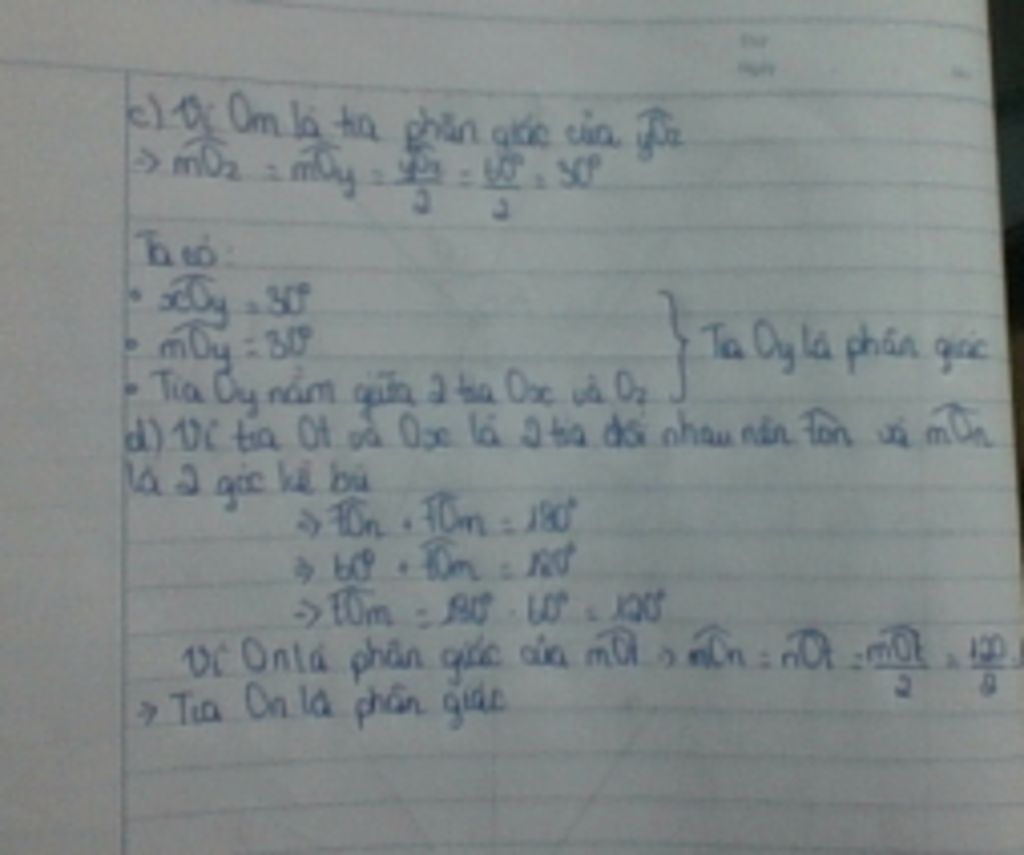 Thứ
Ngày
c) Vì Om là tia phân giác của yOz
=> mOz = mOy = yOz/2 = 60°/2 = 30°
Ta có:
• xOy = 30°
• mOy = 30°
• Tia Oy nằm giữa 2 tia Ox và Oz } Tia Oy là phân giác
d) Vì tia Ot và Ox là 2 tia đối nhau nên tOn và mOn
là 2 góc kề bù
=> tOn + tOm = 180°
=> 60° + tOm = 180°
=> tOm = 180° - 60° = 120°
Vì On là phân giác của mOt => mOn = nOt = mOt/2 = 120/2
=> Tia On là phân giác